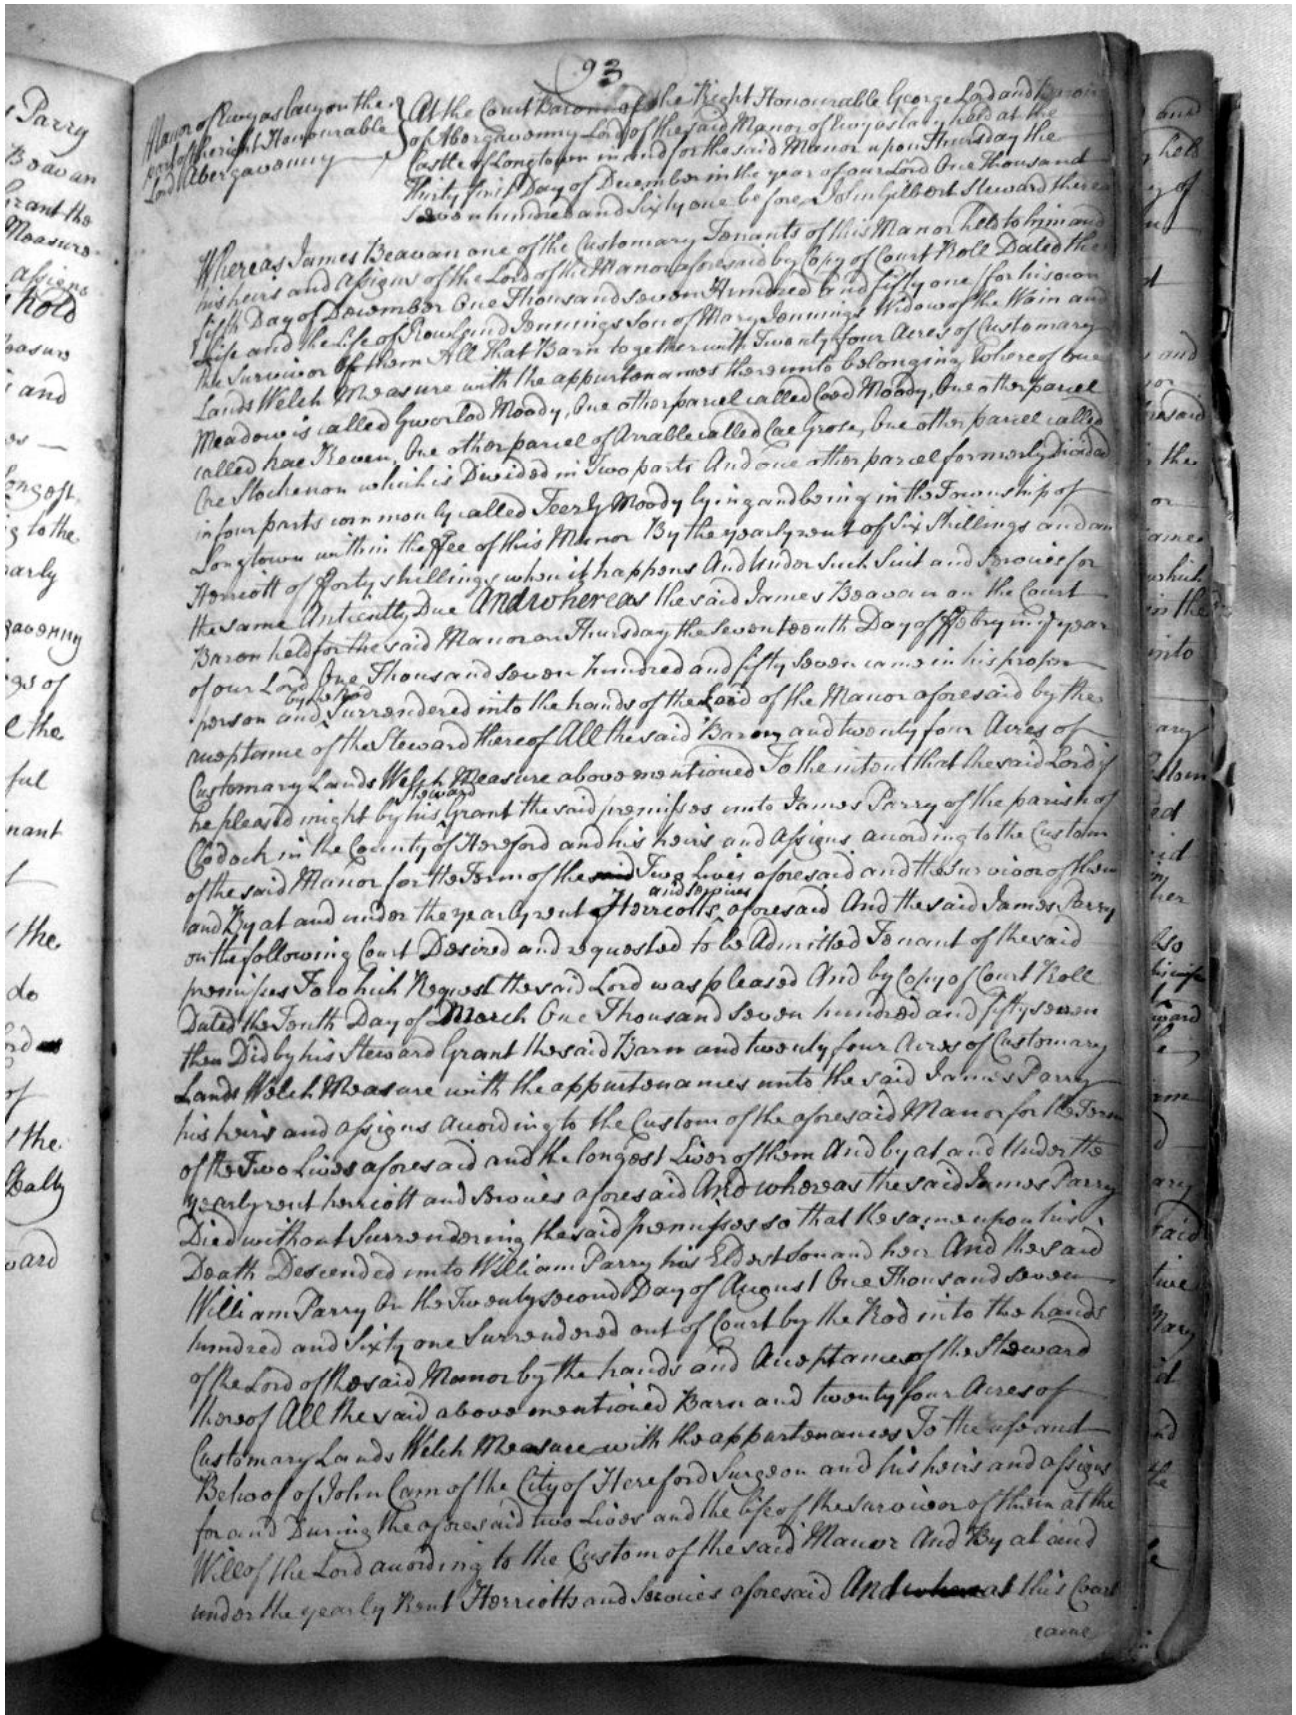 93
Manor of Ewyaslacy on the
part of the right Honourable
Lord Abergavenny
At the Court Baron of the Right Honourable George Lord and Baron
of Abergavenny Lord of the said Manor of Ewyaslacy held at the
Castle of Longtown in and for the said Manor upon Thursday the
Thirty first Day of December in the year of our Lord One Thousand
Seven hundred and Sixty one before John Gilbert Steward thereof
Whereas James Beavan one of the Customary Tenants of this Manor held to him and
his heirs and Assigns of the Lord of the Manor aforesaid by Copy of Court Roll Dated the
fifth Day of December One Thousand seven Hundred and fifty one for his own
Life and the Life of Rowland Jennings Son of Mary Jennings Widow of the Wain and
the Survivor of them All That Barn together with Twenty four Acres of Customary
Lands Welch Measure with the appurtenances thereunto belonging Whereof one
Meadow is called Gworlod Moody, One other parcel called Coed Moody, One other parcel
called hae Keven, One other parcel of Arrable called Cae Grose, One other parcel called
Cre Stockenon which is Divided in Two parts And one other parcel formerly Divided
in four parts commonly called Teer y Moody lying and being in the Township of
Longtown within the ffee of this Manor By the yearly rent of Six Shillings and an
Herriott of fforty shillings when it happens And Under such Suit and Services for
the same Antiently Due And whereas the said James Beavan on the Court
Baron held for the said Manor on Thursday the Seventeenth Day of ffebry in ye year
of our Lord One Thousand seven hundred and fifty seven came in his proper
person and by the rod Surrendered into the hands of the Lord of the Manor aforesaid by the
acceptance of the Steward thereof All the said Barn and twenty four Acres of
Customary Lands Welch Measure above mentioned To the intent that the said Lord if
he pleased might by his Steward Grant the said premisses unto James Parry of the parish of
Clodock in the County of Hereford and his heirs and Assigns according to the Custom
of the said Manor for the Term of the said Two Lives aforesaid and the survivor of them
and By at and under the yearly rent Herriotts and services aforesaid And the said James Parry
on the following Court Desired and requested to be Admitted Tenant of the said
premisses To which Request the said Lord was pleased And by Copy of Court Roll
Dated the Tenth Day of March One Thousand seven hundred and fifty seven
then Did by his Steward Grant the said Barn and twenty four Acres of Customary
Lands Welch Measure with the appurtenances unto the said James Parry
his heirs and Assigns according to the Custom of the aforesaid Manor for the Term
of the Two Lives aforesaid and the longest Liver of them And by at and Under the
yearly rent herriott and Services aforesaid And whereas the said James Parry
Died without Surrendering the said premisses so that the same upon his
Death Descended unto William Parry his Eldest Son and heir And the said
William Parry On the Twenty second Day of August One Thousand seven
hundred and Sixty one Surrendered out of Court by the Rod into the hands
of the Lord of the said Manor by the hands and Acceptance of the Steward
thereof All the said above mentioned Barn and twenty four Acres of
Customary Lands Welch Measure with the appurtenances To the use and
Behoof of John Cam of the City of Hereford Surgeon and his heirs and assigns
for and During the aforesaid two Lives and the life of the survivor of them at the
Will of the Lord according to the Custom of the said Manor And By at and
under the yearly Rent Herriotts and Services aforesaid And whereas at this Court
came